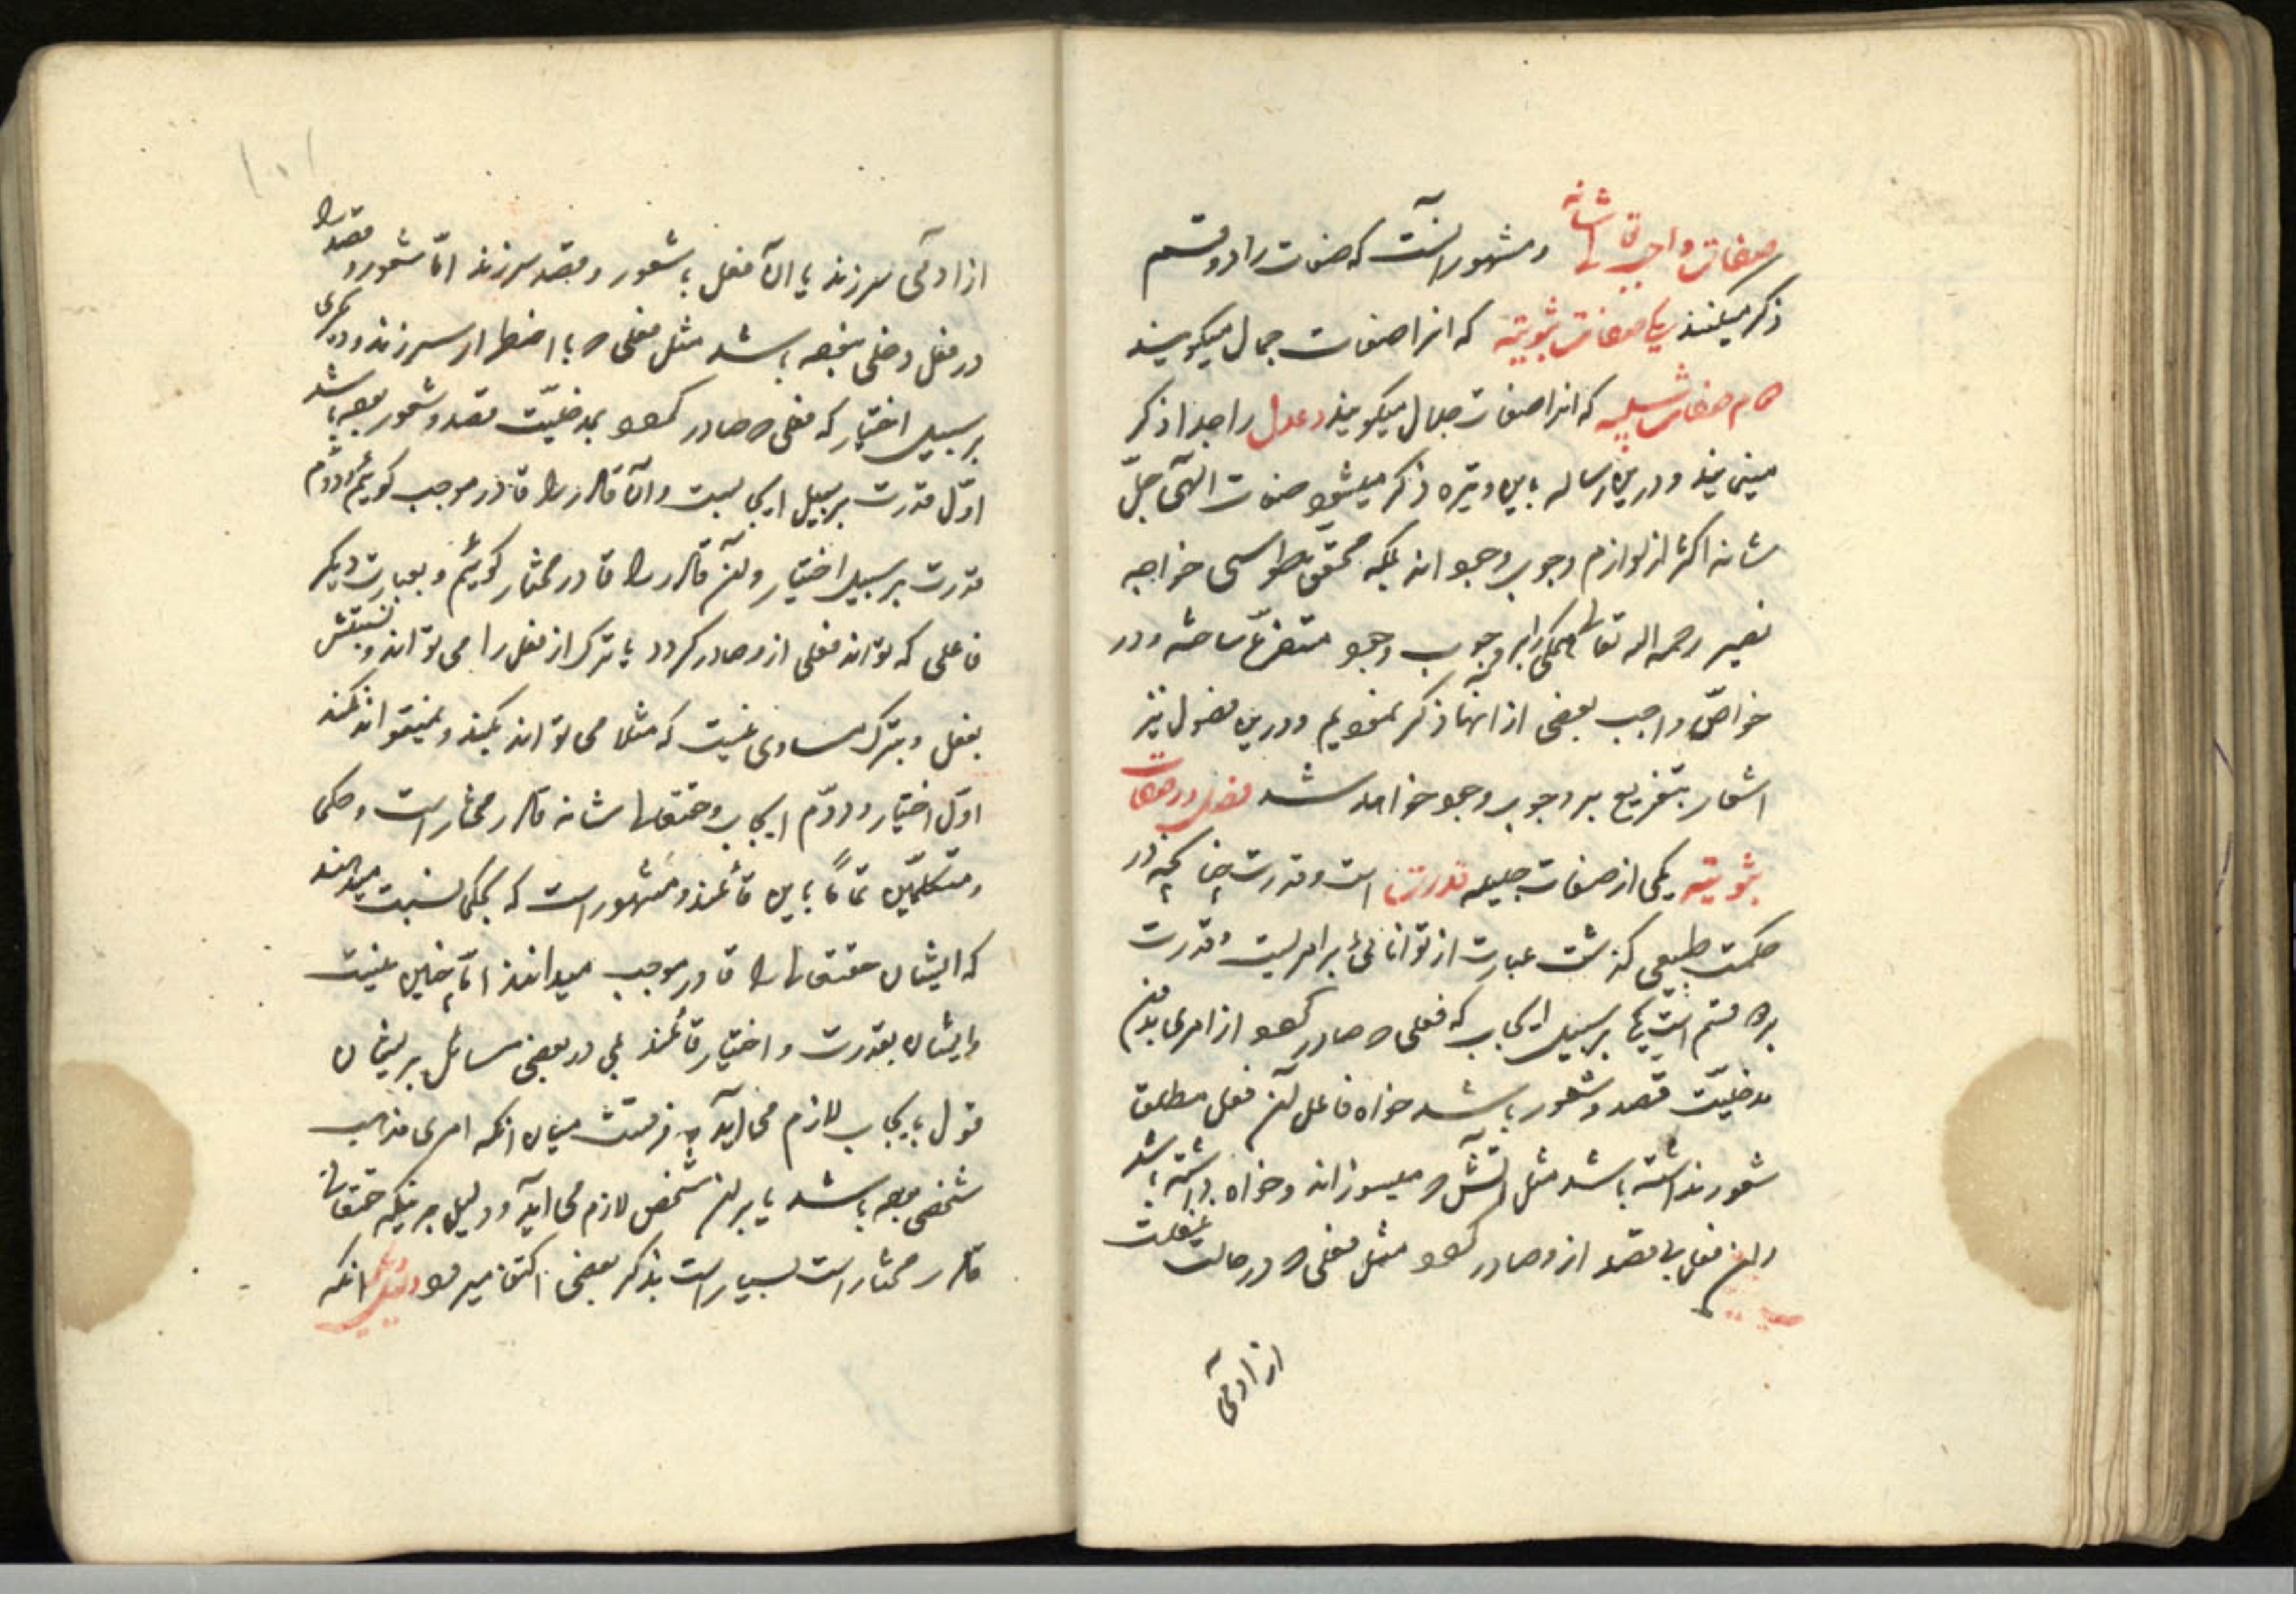 صفات واجب تعالی شانه و مشهور آنست که صفات را دو قسم
ذکر میکنند یکی صفات ثبوتیه که انرا صفات جمال میکویند
دوم صفات سلبیه که انرا صفات جلال میکویند و عدل را جدا ذکر
مینمایند و درین رساله باین وتیره ذکر میشود صفات الهی جلّ
شانه اکثر از لوازم وجوب وجود اند بلکه محقق طوسی خواجه
نصیر رحمه الله تعالی همکی را بر وجوب وجود متفرّع ساخته و در
خواصّ واجب بعضی از انها ذکر نمودیم و درین فصول نیز
اشعار بتفریع بر وجوب وجود خواهد شد فصل در صفات
ثبوتیه یکی از صفات جلیله قدرت است و قدرت چنانچه در
حکمت طبیعی کذشت عبارت از توانائی بر امریست و قدرت
بر دو قسم است یکی بر سبیل ایجاب که فعلی صادر کردد از امری بدون
مدخلیّت قصد و شعور باشد خواه فاعل آن فعل مطلق
شعور نداشته باشد مثل آتش که میسوزاند و خواه داشته باشد
و آن فعل بی قصد ازو صادر کردد مثل فعلی که در حالت غفلت
از ادمی
از ادمی سر زند یا آن فعل با شعور و قصد سر زند امّا شعور و قصد را
در فعل دخلی نبوده باشد مثل فعلی که با اضطرار سر زند و دیکری
بر سبیل اختیار که فعلی که صادر کردد بمدخلیّت قصد و شعور بوده باشد
اوّل قدرت بر سبیل ایجابست و آن قادر را قادر موجب کوئیم و دوم
قدرت بر سبیل اختیار و آن قادر را قادر مختار کوئیم و بعبارت دیکر
فاعلی که تواند فعلی ازو صادر کردد یا ترک آن فعل را می تواند و نسبتش
بفعل و بترک مساوی نیست که مثلا می تواند بکند و نمیتواند نکند
اوّل اختیار و دوّم ایجاب و حقتعالی شانه قادر مختار است و حکما
و متکلّمین تماماً باین قائلند و مشهور است که بحکما نسبت میدهند
که ایشان حقتعالی را قادر موجب میدانند امّا چنین نیست
و ایشان بقدرت و اختیار قائلند بلی در بعضی مسائل بر ایشان
قول بایجاب لازم می آید و فرقست میان انکه امری مذهب
شخصی بوده باشد یا بر آن شخص لازم می آید و دلیل بر اینکه حقتعالی
قادر مختار است بسیار است بذکر بعضی اکتفا میرود دلیل اول انکه